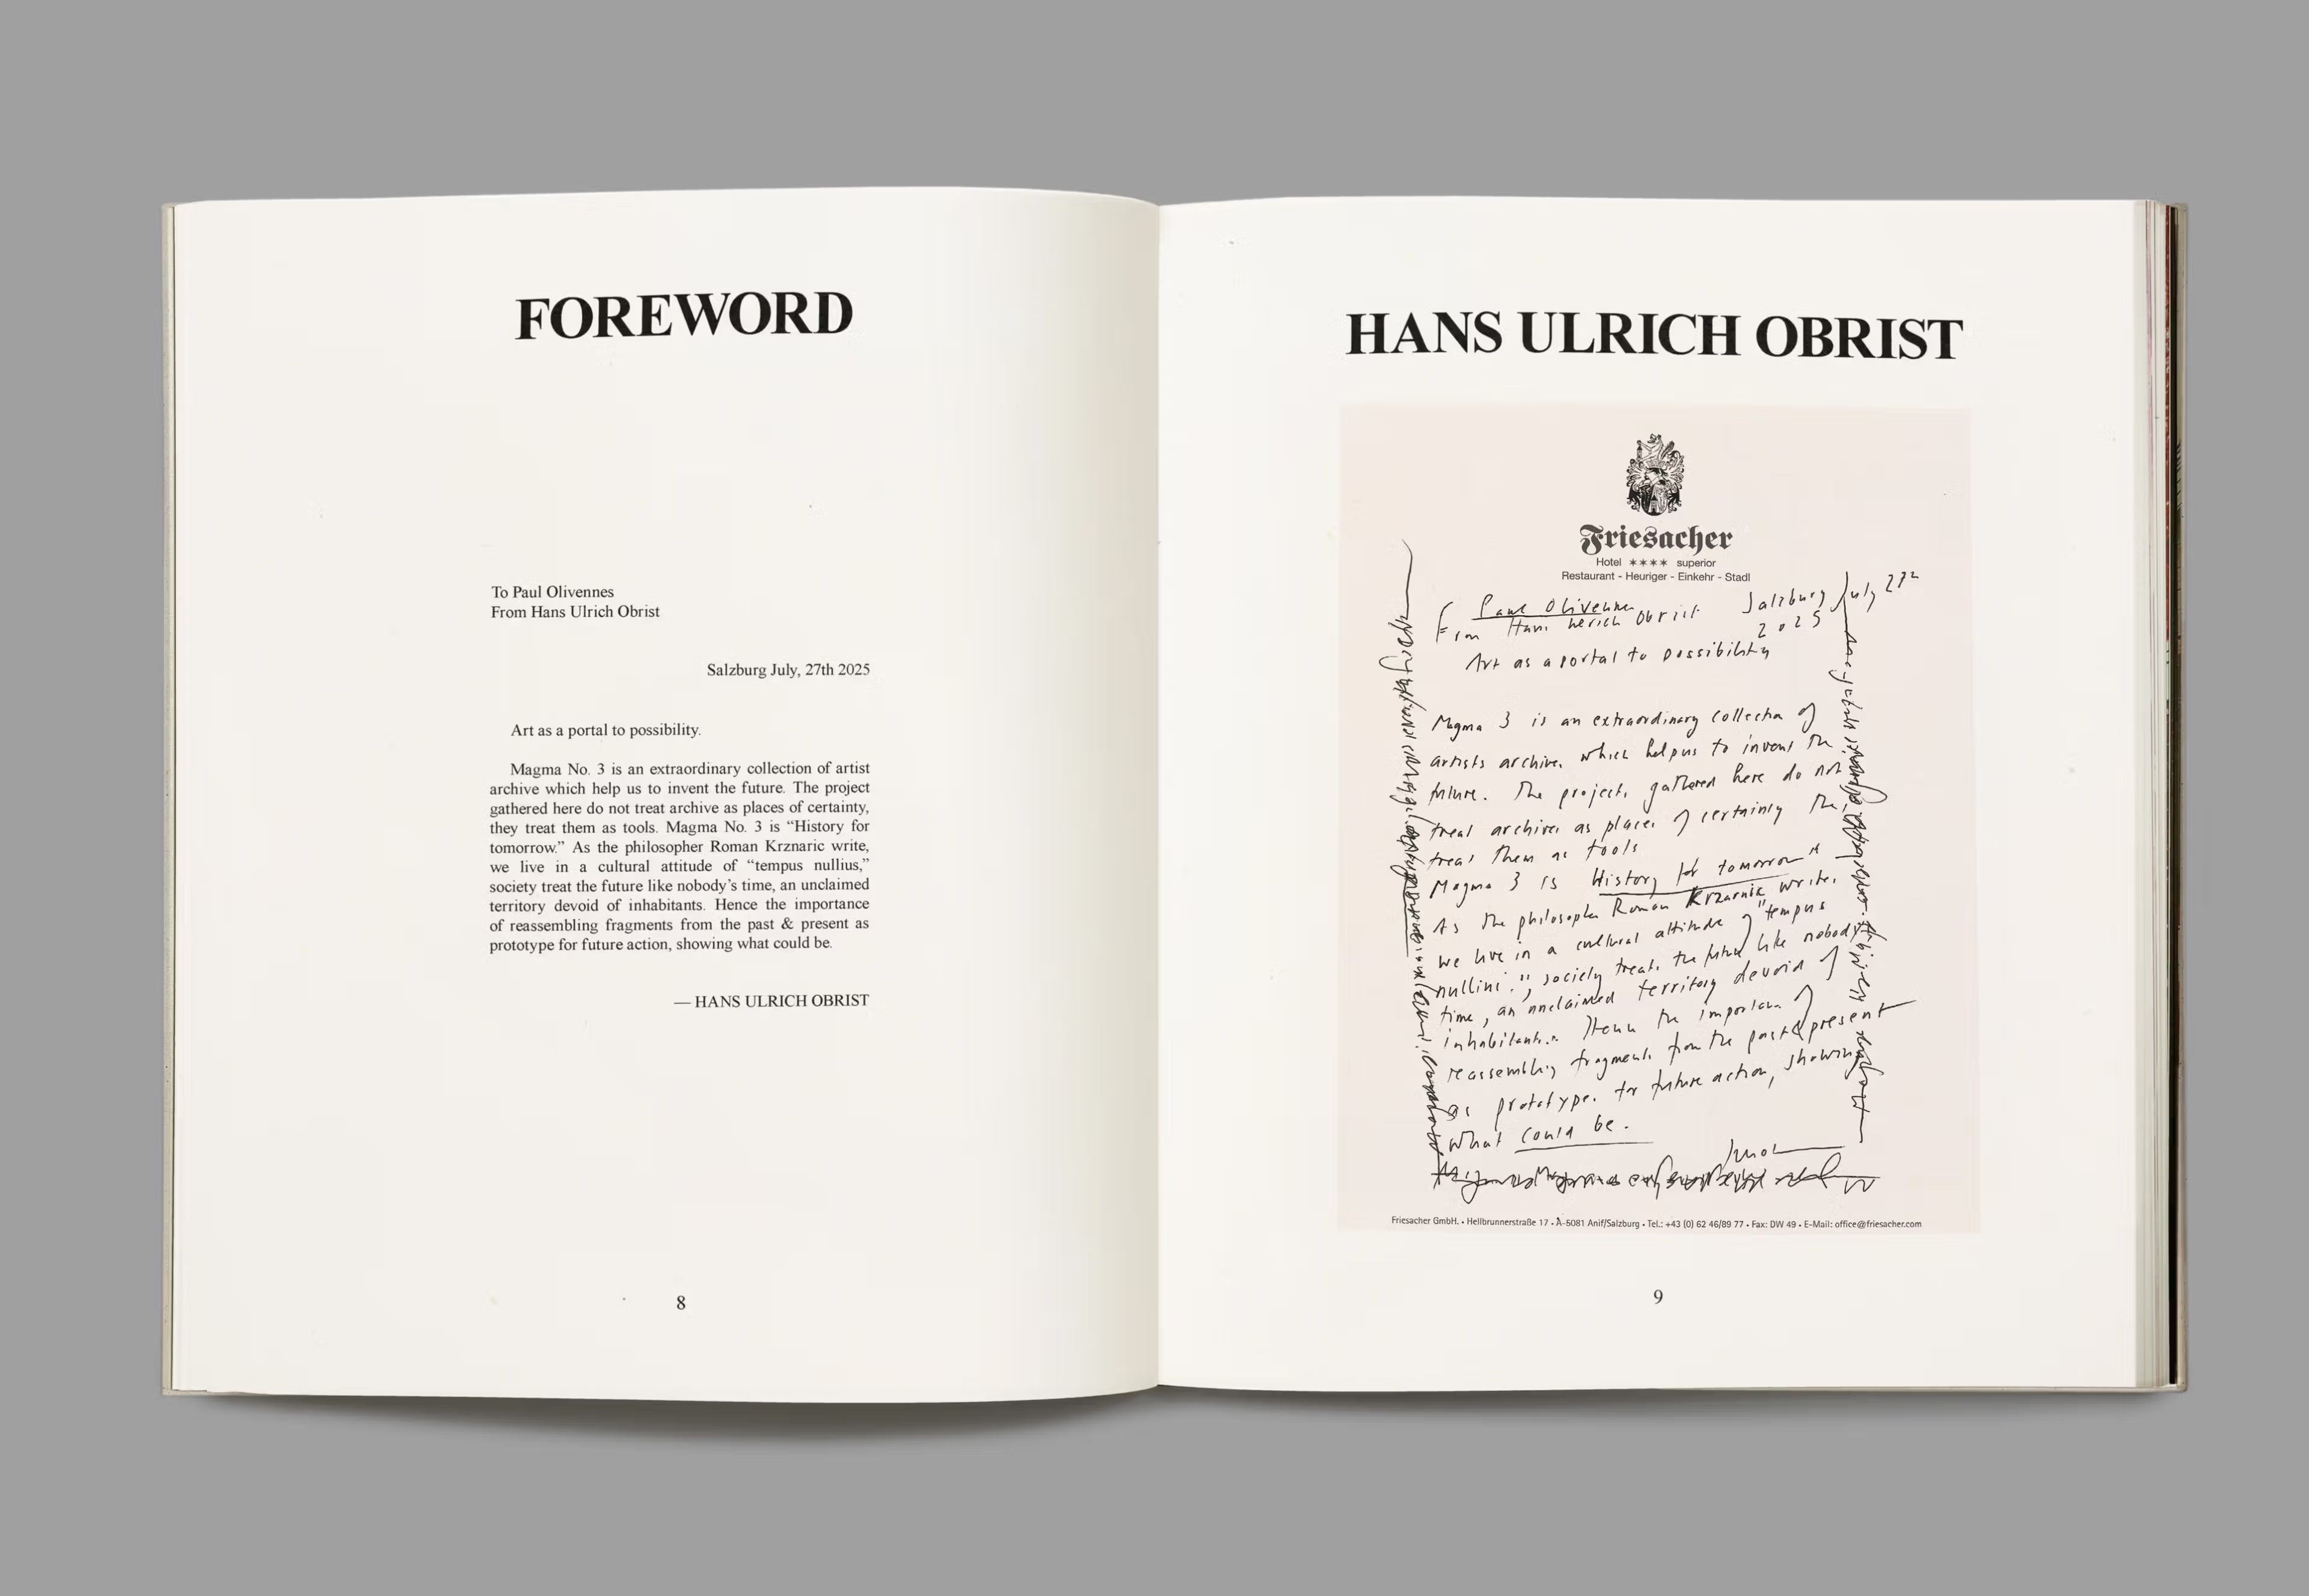 FOREWORD
To Paul Olivennes
From Hans Ulrich Obrist
Salzburg July, 27th 2025
Art as a portal to possibility.
Magma No. 3 is an extraordinary collection of artist
archive which help us to invent the future. The project
gathered here do not treat archive as places of certainty,
they treat them as tools. Magma No. 3 is “History for
tomorrow.” As the philosopher Roman Krznaric write,
we live in a cultural attitude of “tempus nullius,”
society treat the future like nobody’s time, an unclaimed
territory devoid of inhabitants. Hence the importance
of reassembling fragments from the past & present as
prototype for future action, showing what could be.
— HANS ULRICH OBRIST
8
HANS ULRICH OBRIST
Friesacher
Hotel ✶✶✶✶ superior
Restaurant - Heuriger - Einkehr - Stadl
Paul Olivenne Salzburg July 27
From Hans Ulrich Obrist 2025
Art as a portal to possibility
Magma 3 is an extraordinary collection of
artists archive, which help us to invent the
future. The projects gathered here do not
treat archives as places of certainty the
treat them as tools
Magma 3 is History for tomorrow"
As the philosopher Roman Krzarnic writes
we live in a cultural attitude of "tempus
society treats the future like nobody
time, an unclaimed territory devoid of
inhabitants. Hence the importance of
reassembling fragments from the past & present
as prototypes for future action, showing
what could be.
Friesacher GmbH. • Hellbrunnerstraße 17 • A-5081 Anif/Salzburg • Tel.: +43 (0) 62 46/89 77 • Fax: DW 49 • E-Mail: office@friesacher.com
9